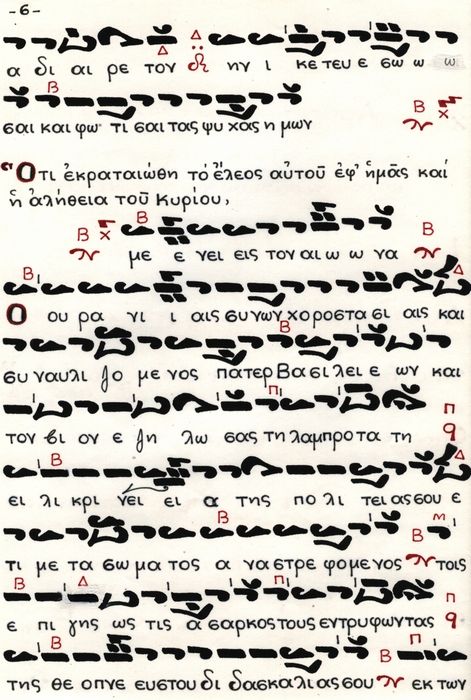 -6-
α δι αι ρε τον ην ι κε τευ ε σω ω ω
σαι και φω τι σαι τας ψυ χας η μων
Ὅτι ἐκραταιώθη τὸ ἔλεος αὐτοῦ ἐφ' ἡμᾶς καί
ἡ ἀλήθεια τοῦ Κυρίου,
με ε νει εις τον αι ω ω να
Ο ου ρα νι ι αις συ νων χοροστα σι αις και
συ ναυλι ζο με νος πατερ Βα σι λει ε ων και
τον βι ον ε ζη λω σας τη λαμπρο τα τη
ει λι κρι νει ει α της πο λι τει ας σου ε
τι με τα σω μα τος α να στρε φομε νος τοις
ε πι γης ως τις α σαρκος τους εντρυφωντας
της θε οπνε ευστου δι δασκαλι ας σου εκ των